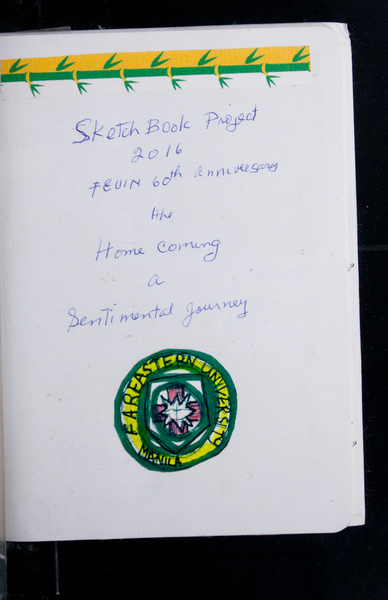 Sketch Book Project
2016
FEUIN 60th anniversary
the
Home Coming
a
Sentimental Journey
FAREASTERN UNIVERSITY
MANILA